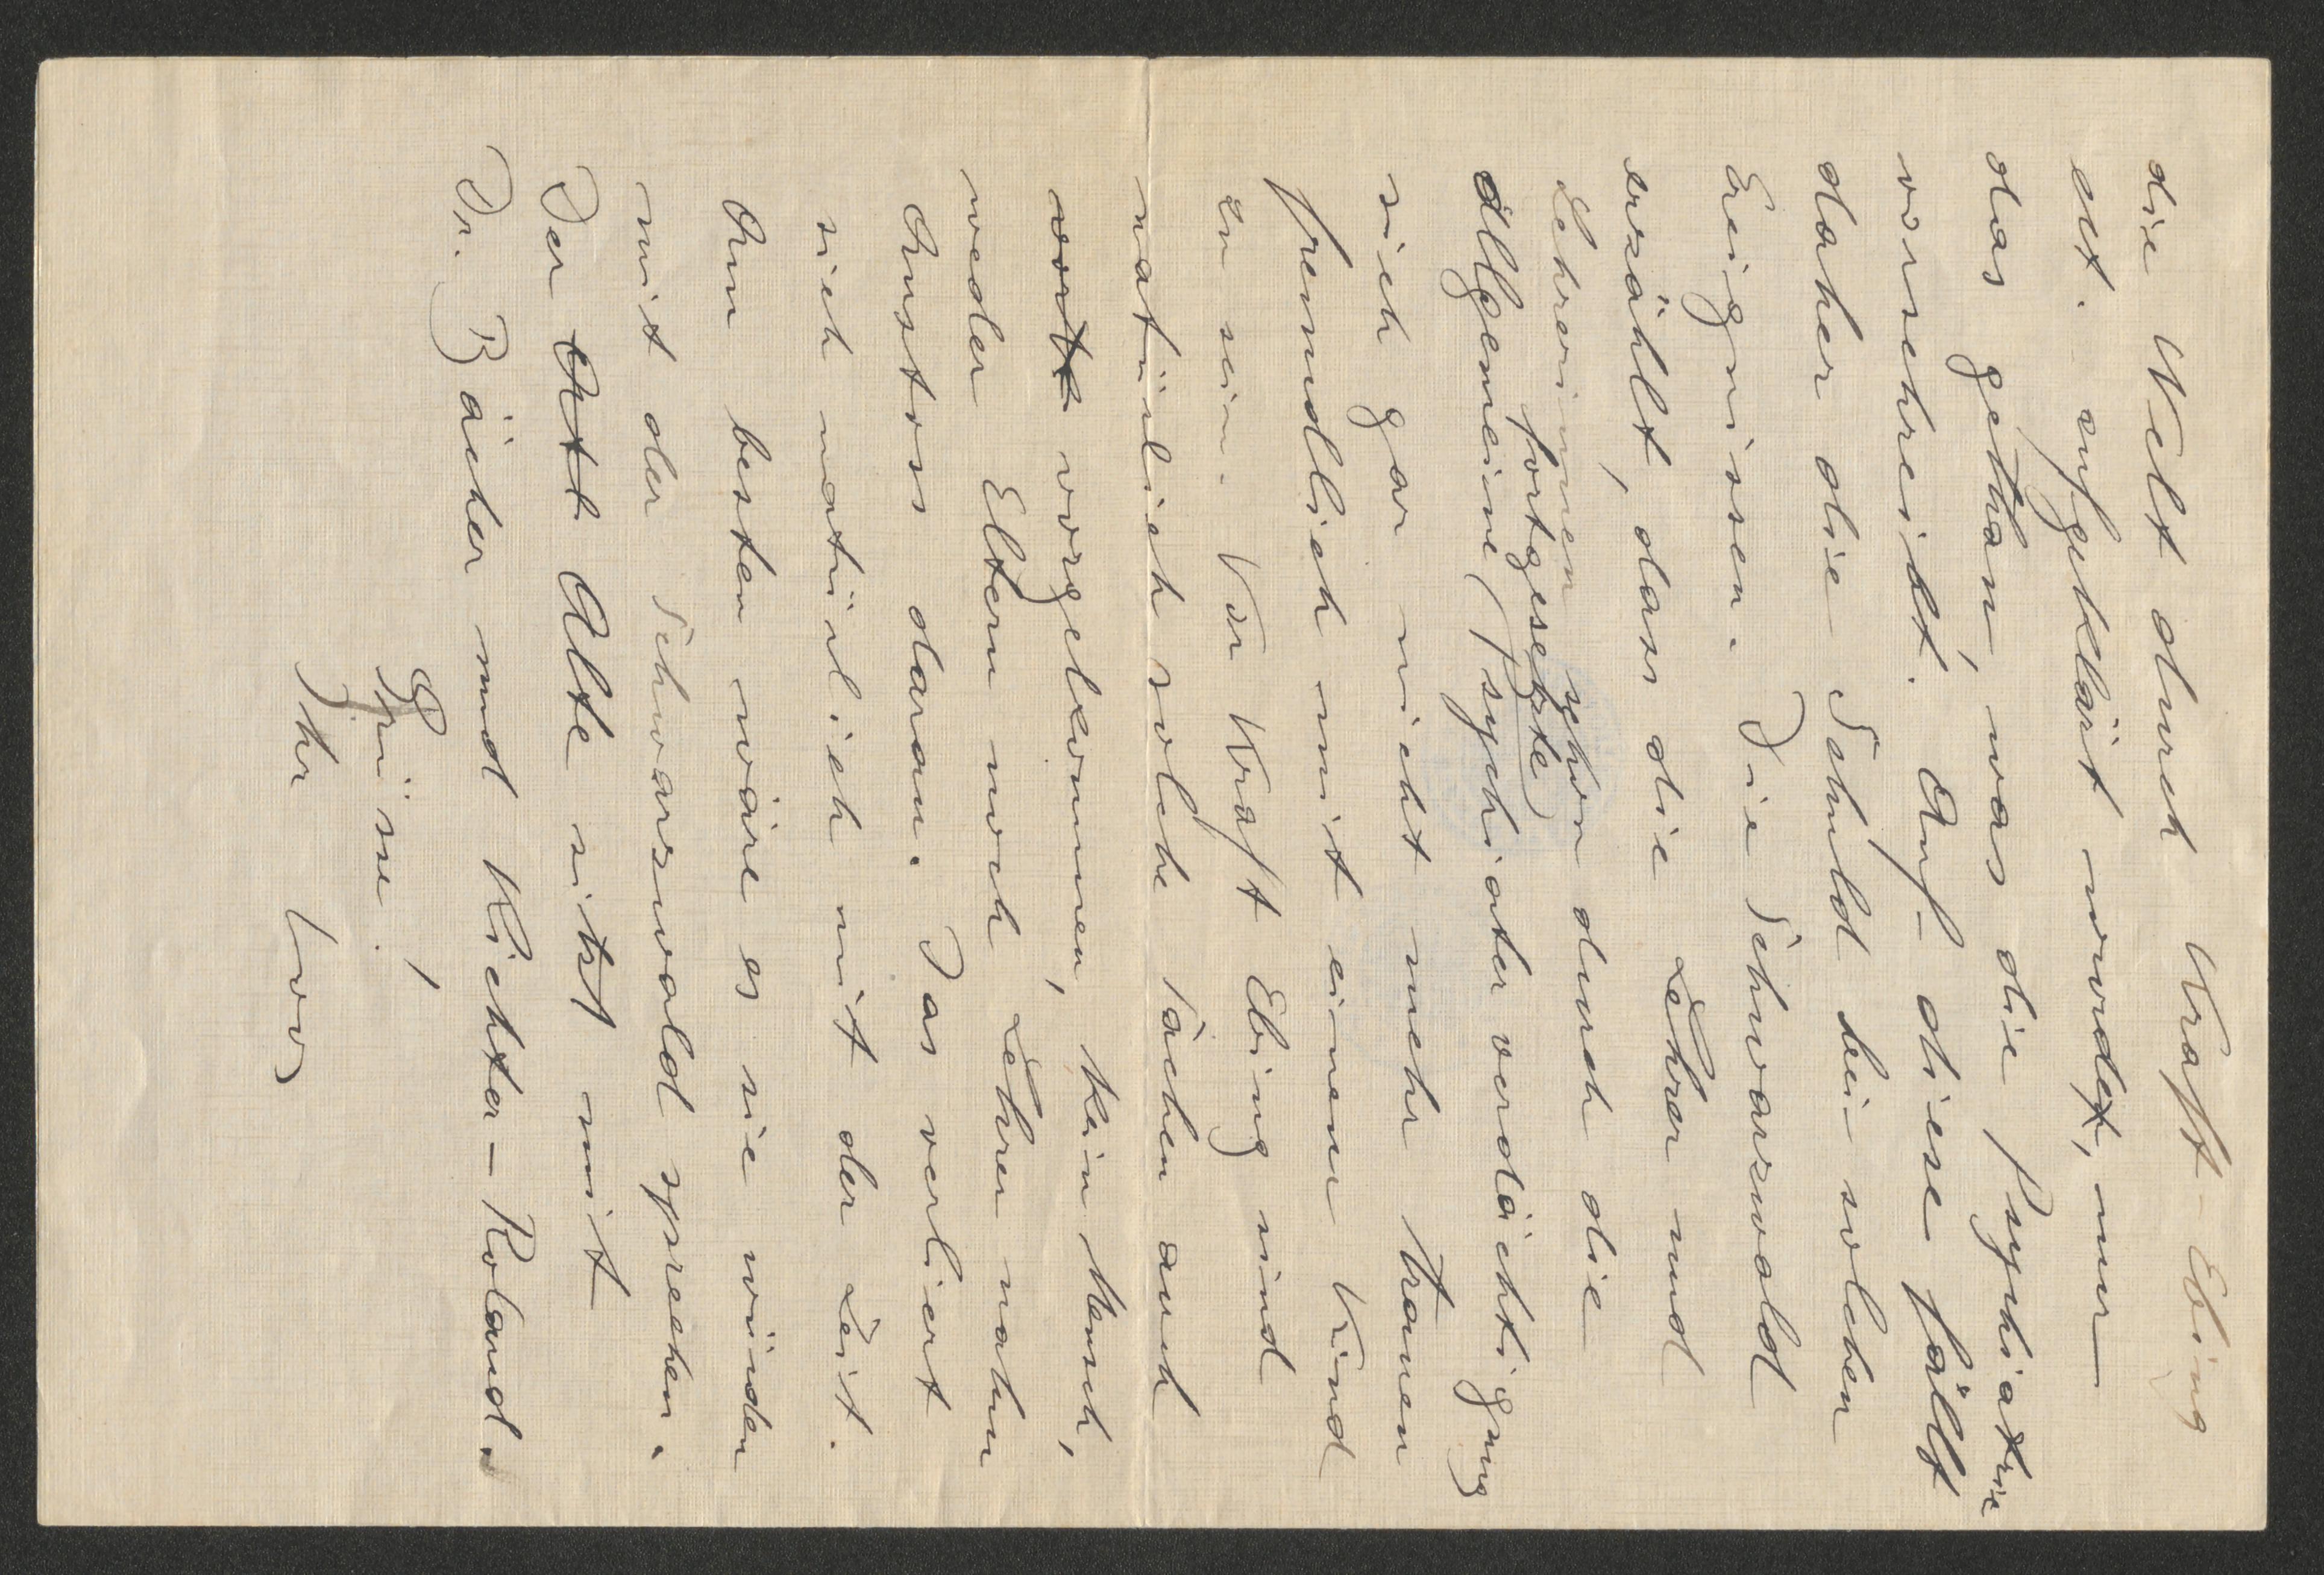 die Welt durch Kraft-Ebing
ect. aufgeklärt wurdet, nur
das gethan, was die Psychiatrie
vorschreibt. Auf diese fällt
daher die Schuld bei solchen
Ereignissen. Die Schwarzwald
erzählt, dass die Lehrer und
Lehrerinnen schon durch die
fortgesetzte
allgemeine Psychiater verdächtigung
sich gar nicht mehr trauen
freundlich mit einem Kind
zu sein. Vor Kraft Ebing sind
natürlich solche Sachen auch
vorgekommen, kein Mensch,
weder Eltern noch Lehrer nahm
Anstoss daran. Das verliert
sich natürlich mit der Zeit.
Am besten wäre es sie würden
mit der Schwarzwald sprechen.
Der Akt Alte sitzt mit
Dr. Bäcker und Richter-Roland.
Grüsse!
Ihr Loos